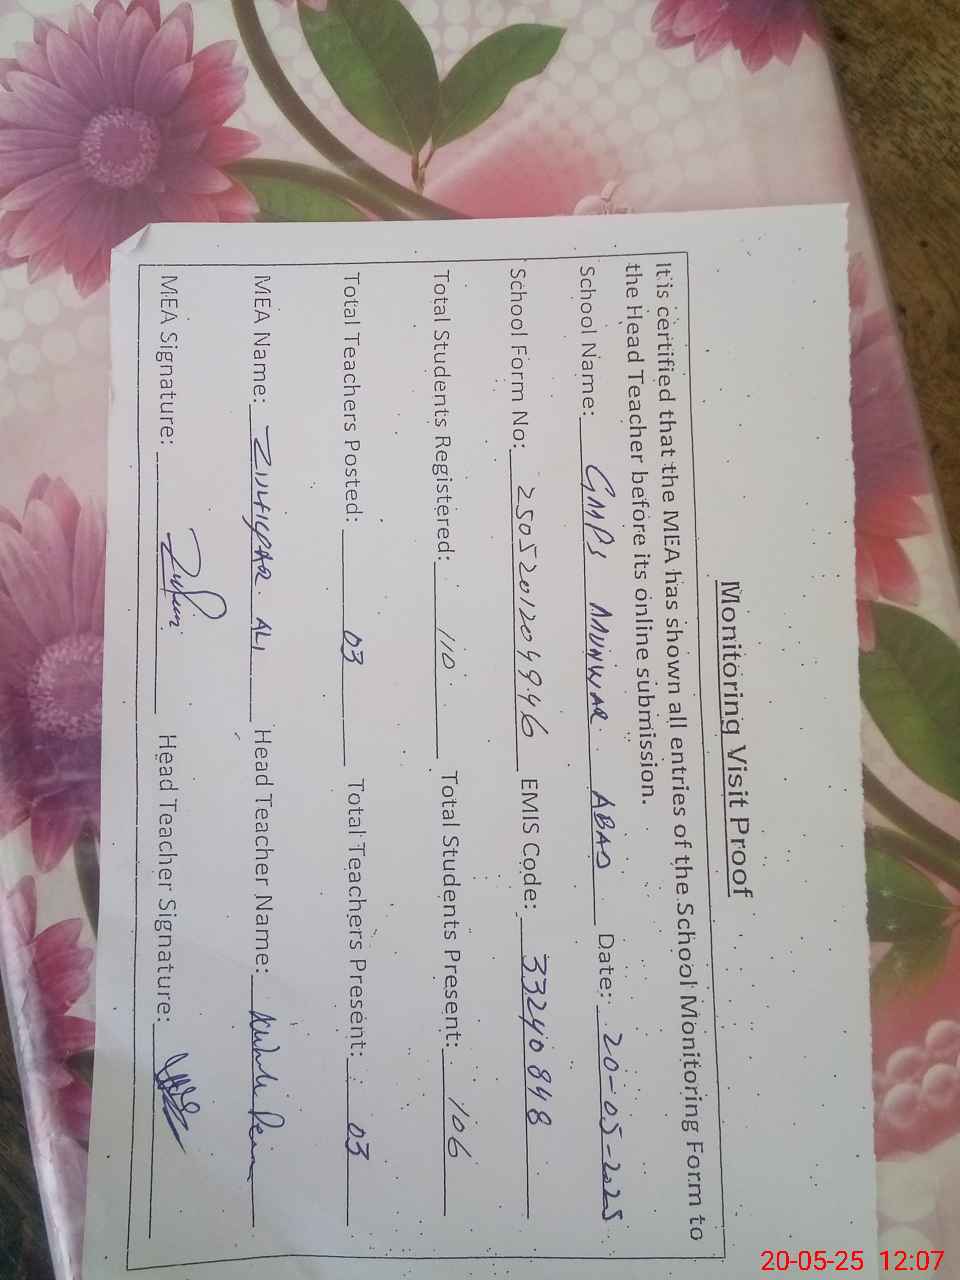 Monitoring Visit Proof
It is certified that the MEA has shown all entries of the School Monitoring Form to
the Head Teacher before its online submission.
School Name: GMPS MUNWAR ABAD Date: 20-05-2025
School Form No: 2505201209946 EMIS Code: 33240848
Total Students Registered: 110 Total Students Present: 106
Total Teachers Posted: 03 Total Teachers Present: 03
MEA Name: ZULFIQAR ALI Head Teacher Name:
MEA Signature: Head Teacher Signature:
20-05-25 12:07